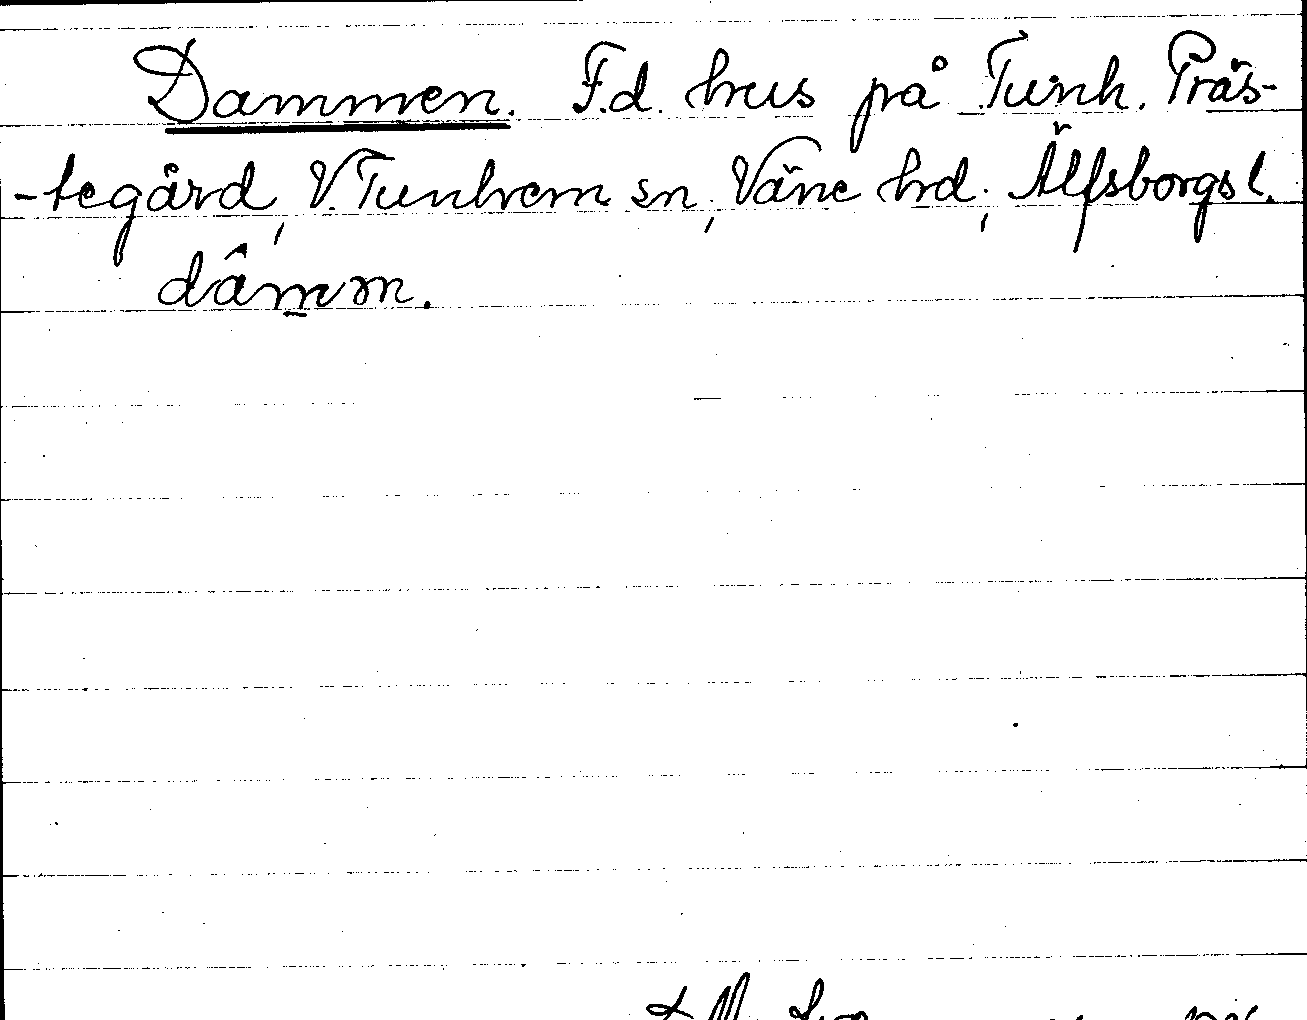 Dammen. F.d. hus på Tunh. Präs-
-tegård, V. Tunhem sn, Väne hd, Älfsborgs l.
dâmm.